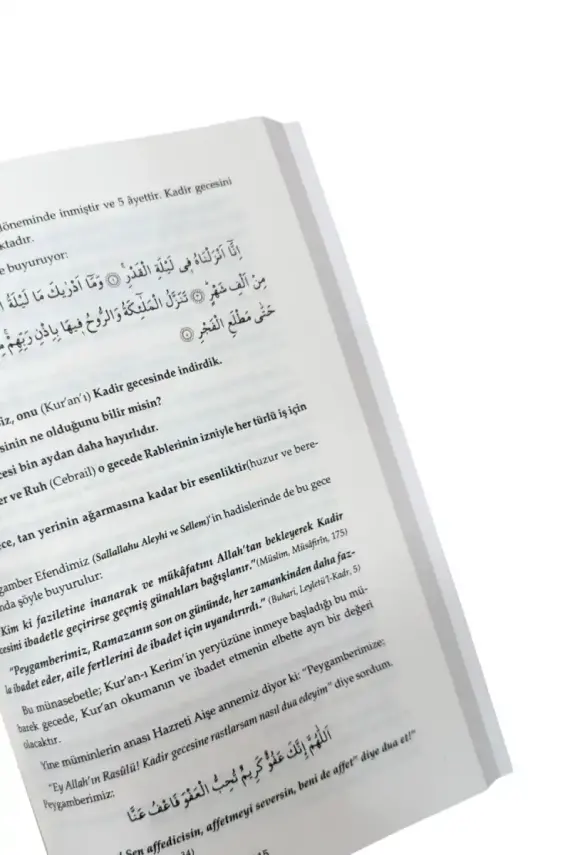 döneminde inmiştir ve 5 âyettir. Kadir gecesini
ktadır.
e buyuruyor:
اِنَّٓا اَنْزَلْنَاهُ فِى لَيْلَةِ الْقَدْرِ ۝ وَمَٓا اَدْرٰيكَ مَا لَيْلَةُ
مِنْ اَلْفِ شَهْرٍ ۝ تَنَزَّلُ الْمَلٰٓئِكَةُ وَالرُّوحُ فِيهَا بِاِذْنِ رَبِّهِمْ
حَتّٰى مَطْلَعِ الْفَجْرِ ۝
iz, onu (Kur'an'ı) Kadir gecesinde indirdik.
sinin ne olduğunu bilir misin?
cesi bin aydan daha hayırlıdır.
er ve Ruh (Cebrail) o gecede Rablerinin izniyle her türlü iş için
ece, tan yerinin ağarmasına kadar bir esenliktir(huzur ve bere-
gamber Efendimiz (Sallallahu Aleyhi ve Sellem)'in hadislerinde de bu gece
nda şöyle buyurulur:
Kim ki faziletine inanarak ve mükâfatını Allah'tan bekleyerek Kadir
cesini ibadetle geçirirse geçmiş günahları bağışlanır." (Müslim, Müsâfirîn, 175)
"Peygamberimiz, Ramazanın son on gününde, her zamankinden daha faz-
la ibadet eder, aile fertlerini de ibadet için uyandırırdı." (Buhari, Leyletü'l-Kadr, 5)
Bu münasebetle; Kur'an-ı Kerim'in yeryüzüne inmeye başladığı bu mü-
barek gecede, Kur'an okumanın ve ibadet etmenin elbette ayrı bir değeri
olacaktır.
Yine müminlerin anası Hazreti Aişe annemiz diyor ki: "Peygamberimize:
"Ey Allah'ın Rasûlü! Kadir gecesine rastlarsam nasıl dua edeyim" diye sordum.
Peygamberimiz:
اَللّٰهُمَّ اِنَّكَ عَفُوٌّ كَرِيمٌ تُحِبُّ الْعَفْوَ فَاعْفُ عَنَّا
! Sen affedicisin, affetmeyi seversin, beni de affet" diye dua et!"